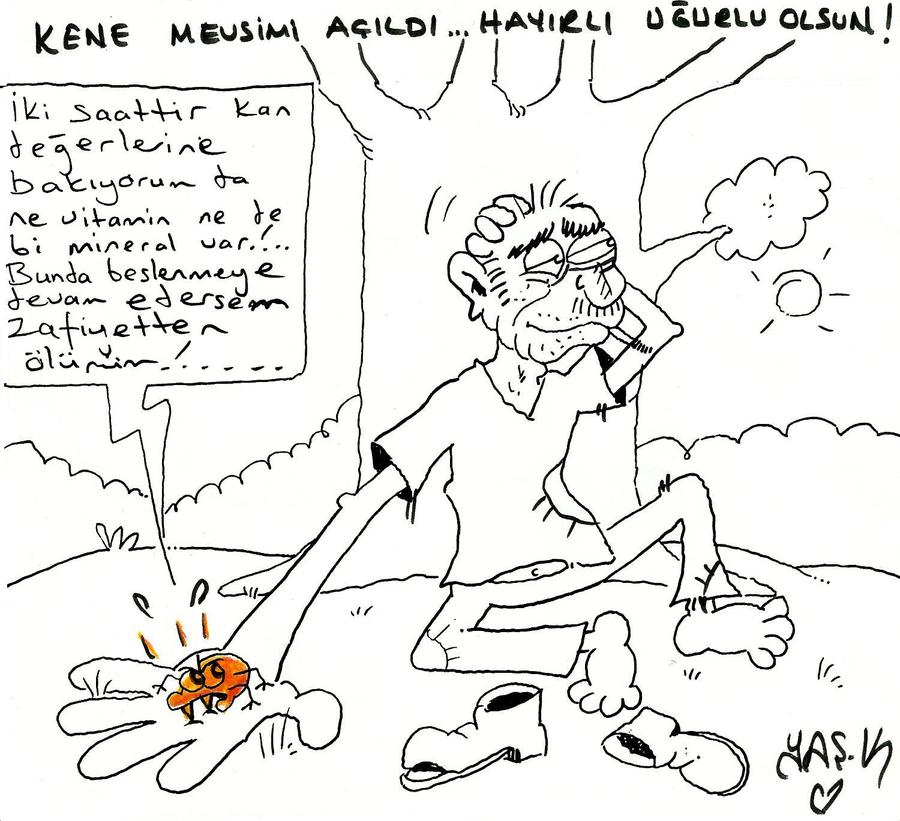 KENE MEVSİMİ AÇILDI... HAYIRLI UĞURLU OLSUN!
İki saattir kan
değerlerine
bakıyorum da
ne vitamin ne de
bi mineral var!...
Bunda beslenmeye
devam edersem
zafiyetten
ölürüm!.......
YAŞ.K